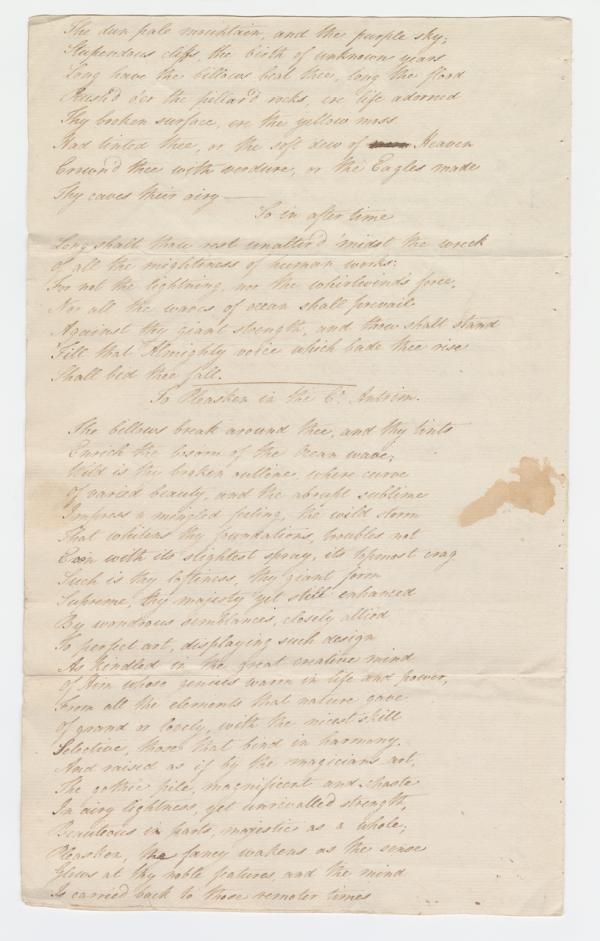 The dun pale mountain, and the purple sky;
Stupendous cliffs, the birth of unknown years
Long have the billows beat thee, long the flood
Rush'd o'er the pillar'd rocks, ere life adorned
Thy broken surface, ere the yellow moss
Had tinted thee, or the soft dew of Heaven
Crown'd thee with verdure, or the Eagles made
Thy caves their airy —
So in after time
Long shall thou rest unalter'd 'midst the wreck
Of all the mightiness of human works:
For not the lightning, nor the whirlwind's force,
Nor all the waves of ocean shall prevail
Against thy giant strength, and thou shall stand
Till that Almighty voice which bade thee rise
Shall bid thee fall.
To Pleasken in the Co. Antrim.
The billows break around thee, and thy tints
Enrich the bosom of the Ocean wave;
Wild is thy broken outline, where curve
Of varied beauty, and the abrubt sublime
Impress a mingled feeling, the wild storm
That whitens thy foundations, troubles not
E'en with its slightest spray, its topmost crag
Such is thy loftiness, thy giant form
Supreme, thy majesty yet still enhanced
By wondrous semblances, closely allied
To perfect art, displaying such design
As kindled in the great creative mind
Of Him whose genius warm in life and power,
From all the elements that nature gave
Of grand or lovely, with the nicest skill
Selective, those that bind in harmony.
And raised as if by the magicians art,
The gothic pile, magnificent and chaste
In airy lightness, yet unrivalled strength,
Beauteous in parts, majestic as a whole;
Pleasken, the fancy wakens as the sense
Glows at thy noble features, and the mind
Is carried back to those remoter times